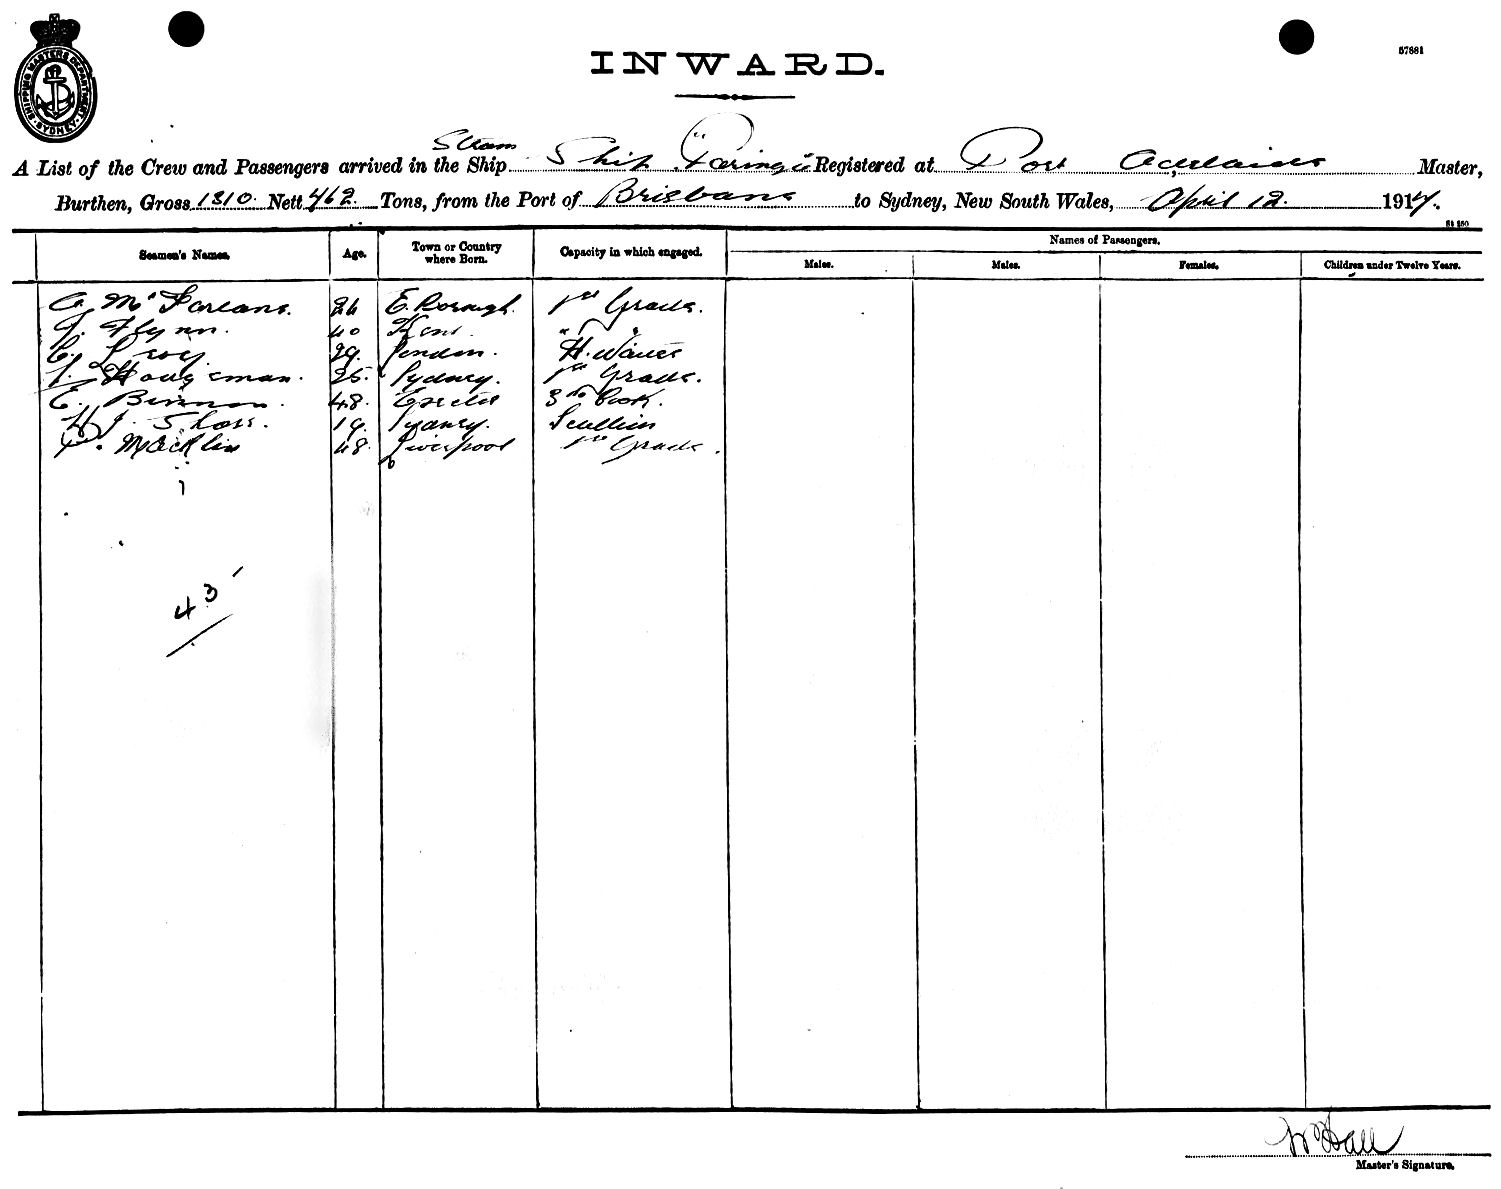 SHIPPING MASTERS DEPARTMENT SYDNEY
INWARD.
57881
A List of the Crew and Passengers arrived in the Ship Steam Ship "Paringa" Registered at Port Adelaide Master,
Burthen, Gross 1310. Nett 462 Tons, from the Port of Brisbane to Sydney, New South Wales, April 12. 1914.
Seamen's Names. Age. Town or Country where Born. Capacity in which engaged. Names of Passengers.
Males. Males. Females. Children under Twelve Years.
McFarlane. 24 E. Borough. 1st Grade.
Flynn. 40 Kent " "
C. 29. London. H. Waiter
25. Sydney. 1st Grade.
E. 48. Exeter 3rd Cook.
H J. 19. Sydney. Scullion
Macklin 48. Liverpool 1st Grade.
43
Master's Signature.